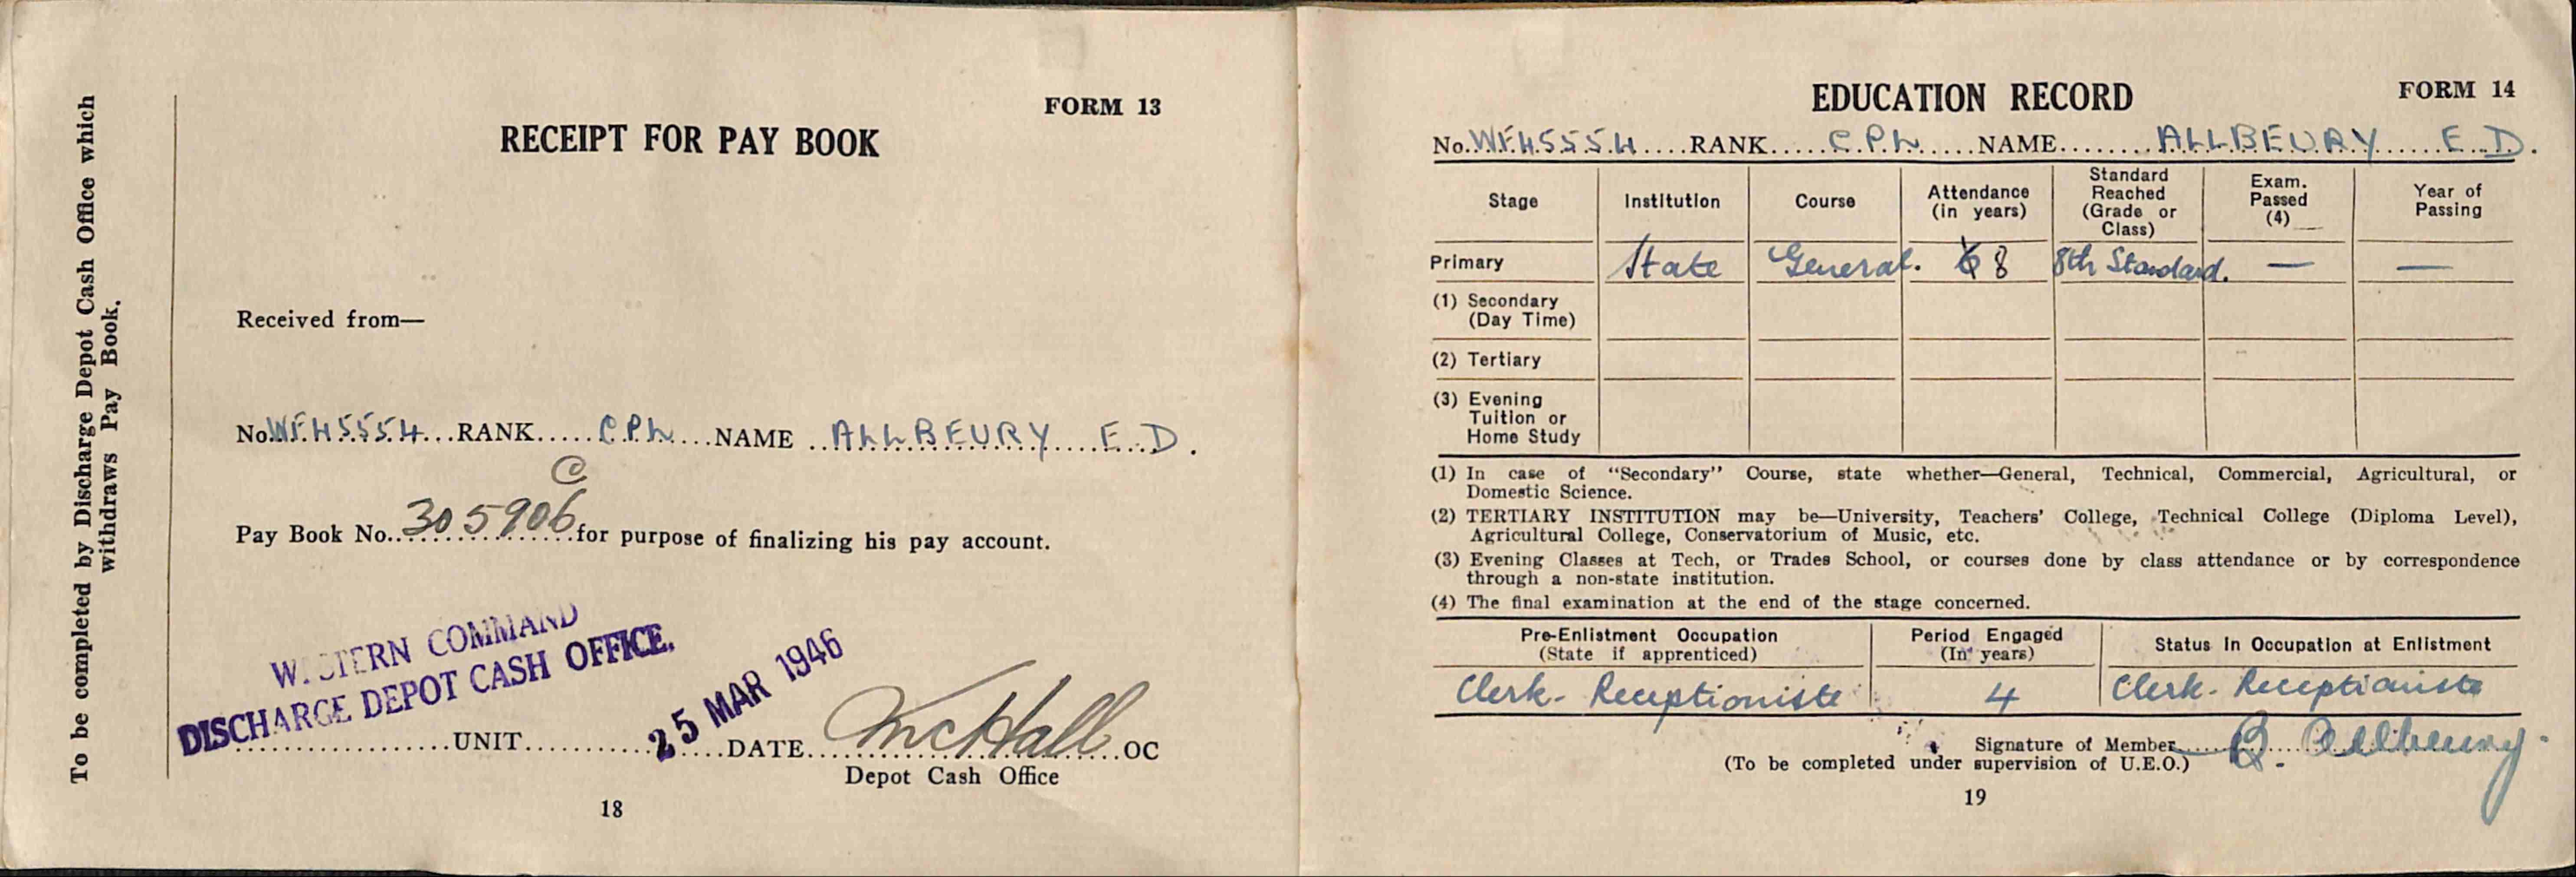 To be completed by Discharge Depot Cash Office which
withdraws Pay Book.
FORM 13
RECEIPT FOR PAY BOOK
Received from—
No. WF45554 RANK CPL NAME ALLBEURY E.D.
C
Pay Book No. 305906 for purpose of finalizing his pay account.
WESTERN COMMAND
DISCHARGE DEPOT CASH OFFICE.
25 MAR 1946
UNIT DATE McHall OC
Depot Cash Office
18
EDUCATION RECORD FORM 14
No. WF45554 RANK C.P.L NAME ALLBEURY E.D.
Stage Institution Course Attendance (in years) Standard Reached (Grade or Class) Exam. Passed (4) Year of Passing
Primary State General. 6 8 8th Standard. — —
(1) Secondary
(Day Time)
(2) Tertiary
(3) Evening
Tuition or
Home Study
(1) In case of “Secondary” Course, state whether—General, Technical, Commercial, Agricultural, or
Domestic Science.
(2) TERTIARY INSTITUTION may be—University, Teachers' College, Technical College (Diploma Level),
Agricultural College, Conservatorium of Music, etc.
(3) Evening Classes at Tech, or Trades School, or courses done by class attendance or by correspondence
through a non-state institution.
(4) The final examination at the end of the stage concerned.
Pre-Enlistment Occupation (State if apprenticed) Period Engaged (In years) Status in Occupation at Enlistment
Clerk - Receptioniste 4 Clerk - Receptioniste
Signature of Member B. Allbeury.
(To be completed under supervision of U.E.O.)
19